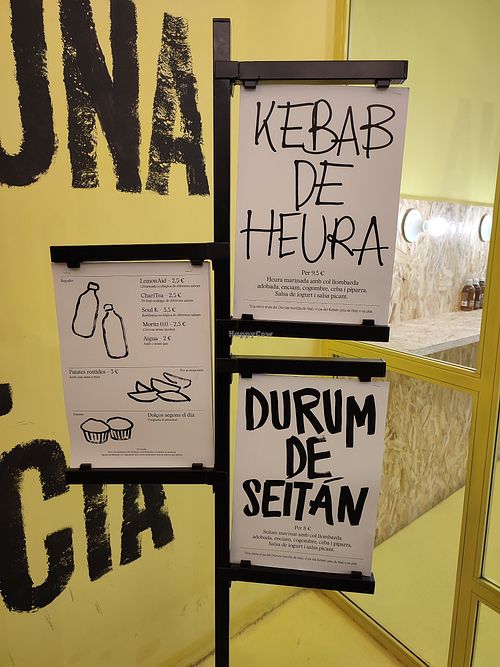 UNA
CIA
KEBAB
DE
HEURA
Per 9,5 €
Heura marinada amb col llombarda
adobada, enciam, cogombre, ceba i piparra.
Salsa de iogurt i salsa picant.
Begudes
LemonAid - 2,5 €
ChariTea - 2,5 €
Soul K - 3,5 €
Moritz 0,0 - 2,5 €
Aigua - 2 €
Patates rostides - 3 €
Per acompanyar
Postres
Dolços segons el dia
HappyCow
DURUM
DE
SEITÁN
Per 8 €
Seitan marinat amb col llombarda
adobada, enciam, cogombre, ceba i piparra.
Salsa de iogurt i salsa picant.